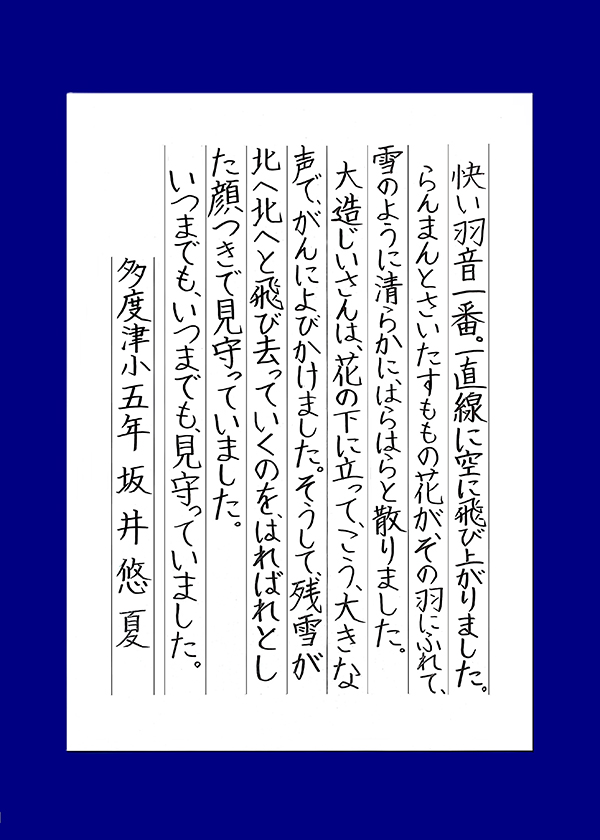 快い羽音一番。一直線に空に飛び上がりました。
らんまんとさいたすももの花が、その羽にふれて、
雪のように清らかに、はらはらと散りました。
大造じいさんは、花の下に立って、こう、大きな
声で、がんによびかけました。そうして、残雪が
北へ北へと飛び去っていくのを、はればれとし
た顔つきで見守っていました。
いつまでも、いつまでも、見守っていました。
多度津小五年 坂井悠夏